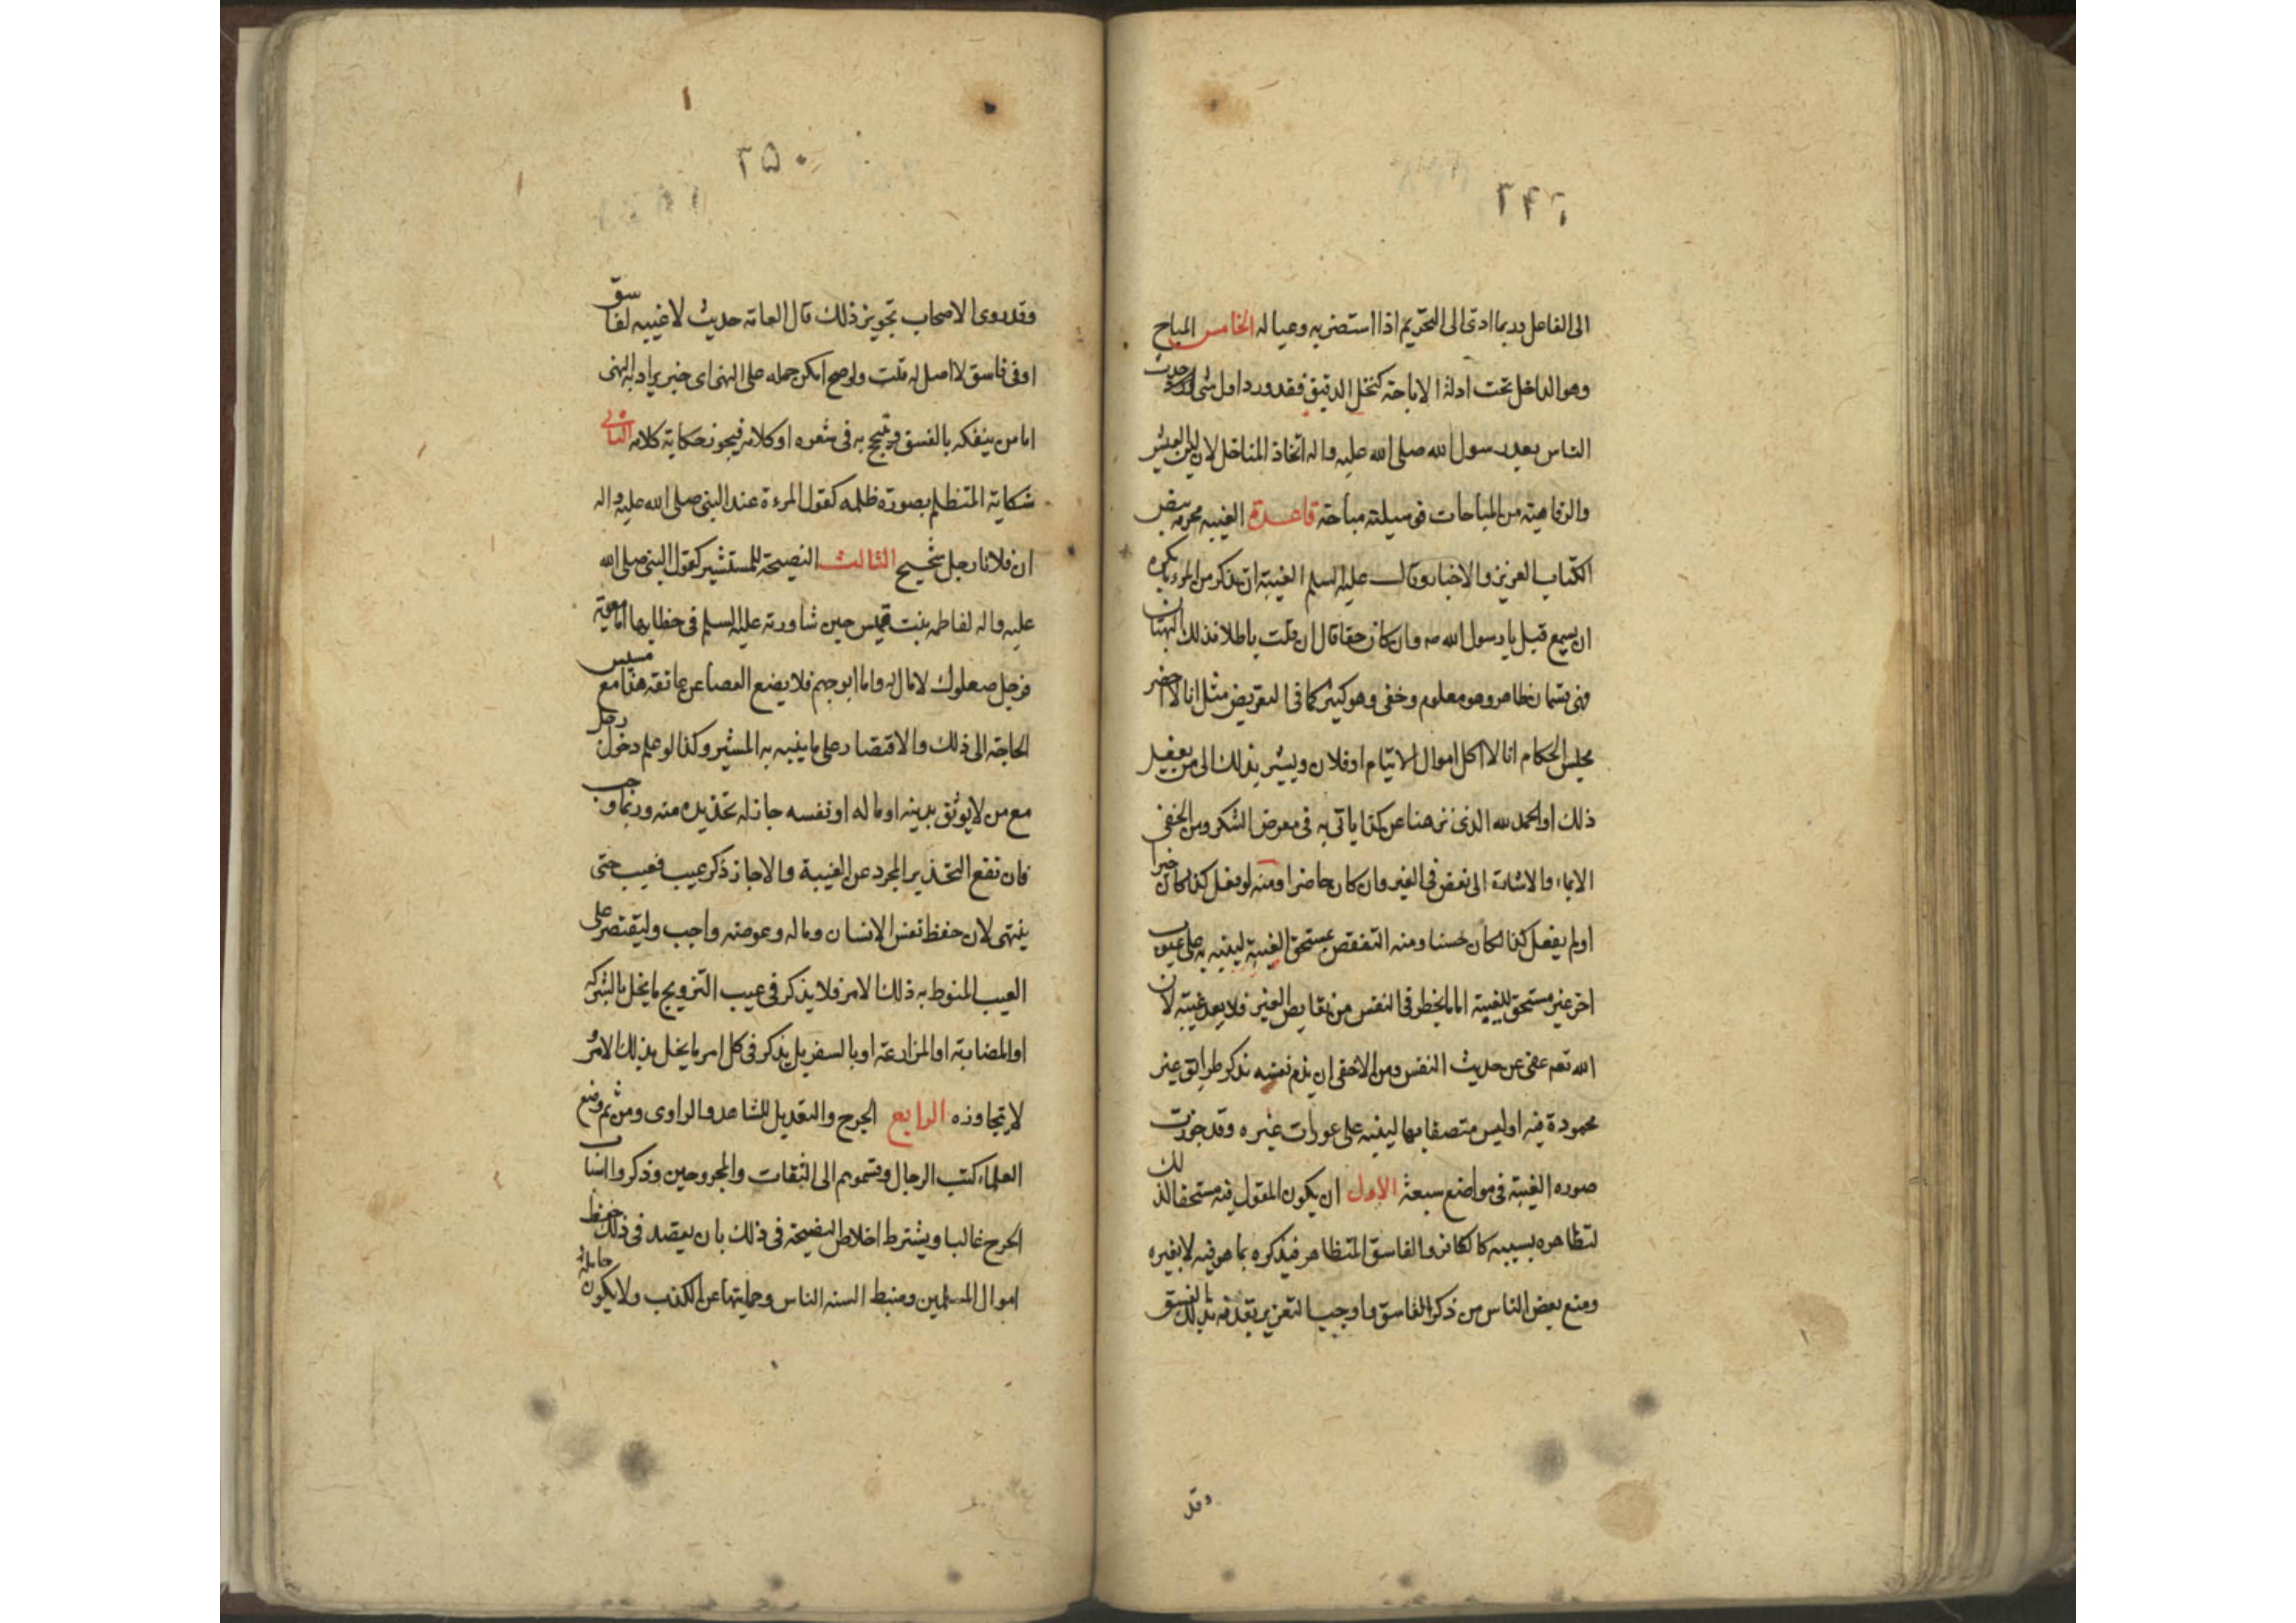 ٢٤٩
الى الفاعل وربما ادى الى التحريم اذا استضر به وعياله الخامس المباح
وهو الداخل تحت ادلة الاباحة كنخل الدقيق فقد ورد اول شئ احدثه
الناس بعد رسول الله صلى الله عليه واله اتخاذ المناخل لان لين العيش
والرفاهية من المباحات فوسيلته مباحة قاعدة الغيبه محرمه بنص
الكتاب العزيز والاخبار وقال عليه السلم الغيبة ان تذكر من المرء ما يكره
ان يسمع قيل يا رسول الله صه وان كان حقا قال ان قلت باطلا فذلك البهتان
وهى قسمان ظاهر وهو معلوم وخفى وهو كثير كما فى التعريض مثل انا لا احضر
مجلس الحكام انا لا اكل اموال الايتام او فلان ويشير بذلك الى من يفعل
ذلك او الحمد لله الذى نزهنا عن كذا ياتى به فى معرض الشكر ومن الخفى
الايماء والاشارة الى نقص فى الغير وان كان حاضرا ومنه لو فعل كذا كان خيرا
اولم يفعل كذا لكان حسنا ومنه التنقص بمستحق الغيبة لينبه به على عيوب
اخر غير مستحق للغيبة اما ما يخطر فى النفس من نقايص الغير فلا يعد غيبة لان
الله تعه عفى عن حديث النفس ومن الاخفى ان يذم نفسه بذكر طرائق غير
محمودة فيه او ليس متصفا بها لينبه على عورات غيره وقد جوزت
صوره الغيبة فى مواضع سبعة الاول ان يكون المقول فيه مستحقا لذلك
لتظاهره بسببه كالكافر والفاسق المتظاهر فيذكره بما هو فيه لا بغيره
ومنع بعض الناس من ذكر الفاسق واوجب التعزير بقذفه بذلك الفسق
وقد
٢٥٠
وقد روى الاصحاب تجويز ذلك قال العامة حديث لا غيبه لفاسق
او فى فاسق لا اصل له قلت ولو صح امكن حمله على النهى اى خبر يراد به النهى
اما من يتفكه بالفسق ويتبجح به فى شعره او كلامه فيجوز حكاية كلامه الثانى
شكاية المتظلم بصورة ظلمه كقول المرءة عند النبى صلى الله عليه واله
ان فلانا رجل شحيح الثالث النصيحة للمستشير كقول النبى صلى الله
عليه واله لفاطمه بنت قيس حين شاورته عليه السلم فى خطابها اما معوية
فرجل صعلوك لا مال له واما ابو جهم فلا يضع العصا عن عاتقه هذا مع مسيس
الحاجة الى ذلك والاقتصار على ما ينبه به المشير وكذا لو علم دخول رجل
مع من لا يوثق بدينه او ماله او نفسه جاز له تحذيره منه وربما وجب
فان نفع التحذير المجرد عن الغيبة والا جاز ذكر عيب فعيب حتى
ينتهى لان حفظ نفس الانسان وماله وعرضه واجب وليقتصر على
العيب المنوط به ذلك الامر فلا يذكر فى عيب التزويج ما يخل بالشركه
او المضاربة او المزارعة او بالسفر بل يذكر فى كل امر ما يخل بذلك الامر
لا يتجاوزه الرابع الجرح والتعديل للشاهد والراوى ومن ثم وضع
العلماء كتب الرجال وقسموهم الى الثقات والمجروحين وذكروا اسباب
الجرح غالبا ويشترط اخلاص النصيحة فى ذلك بان يقصد فى ذلك حفظ
اموال المسلمين وضبط السنه الناس وحمايتها عن الكذب ولا يكون حامله